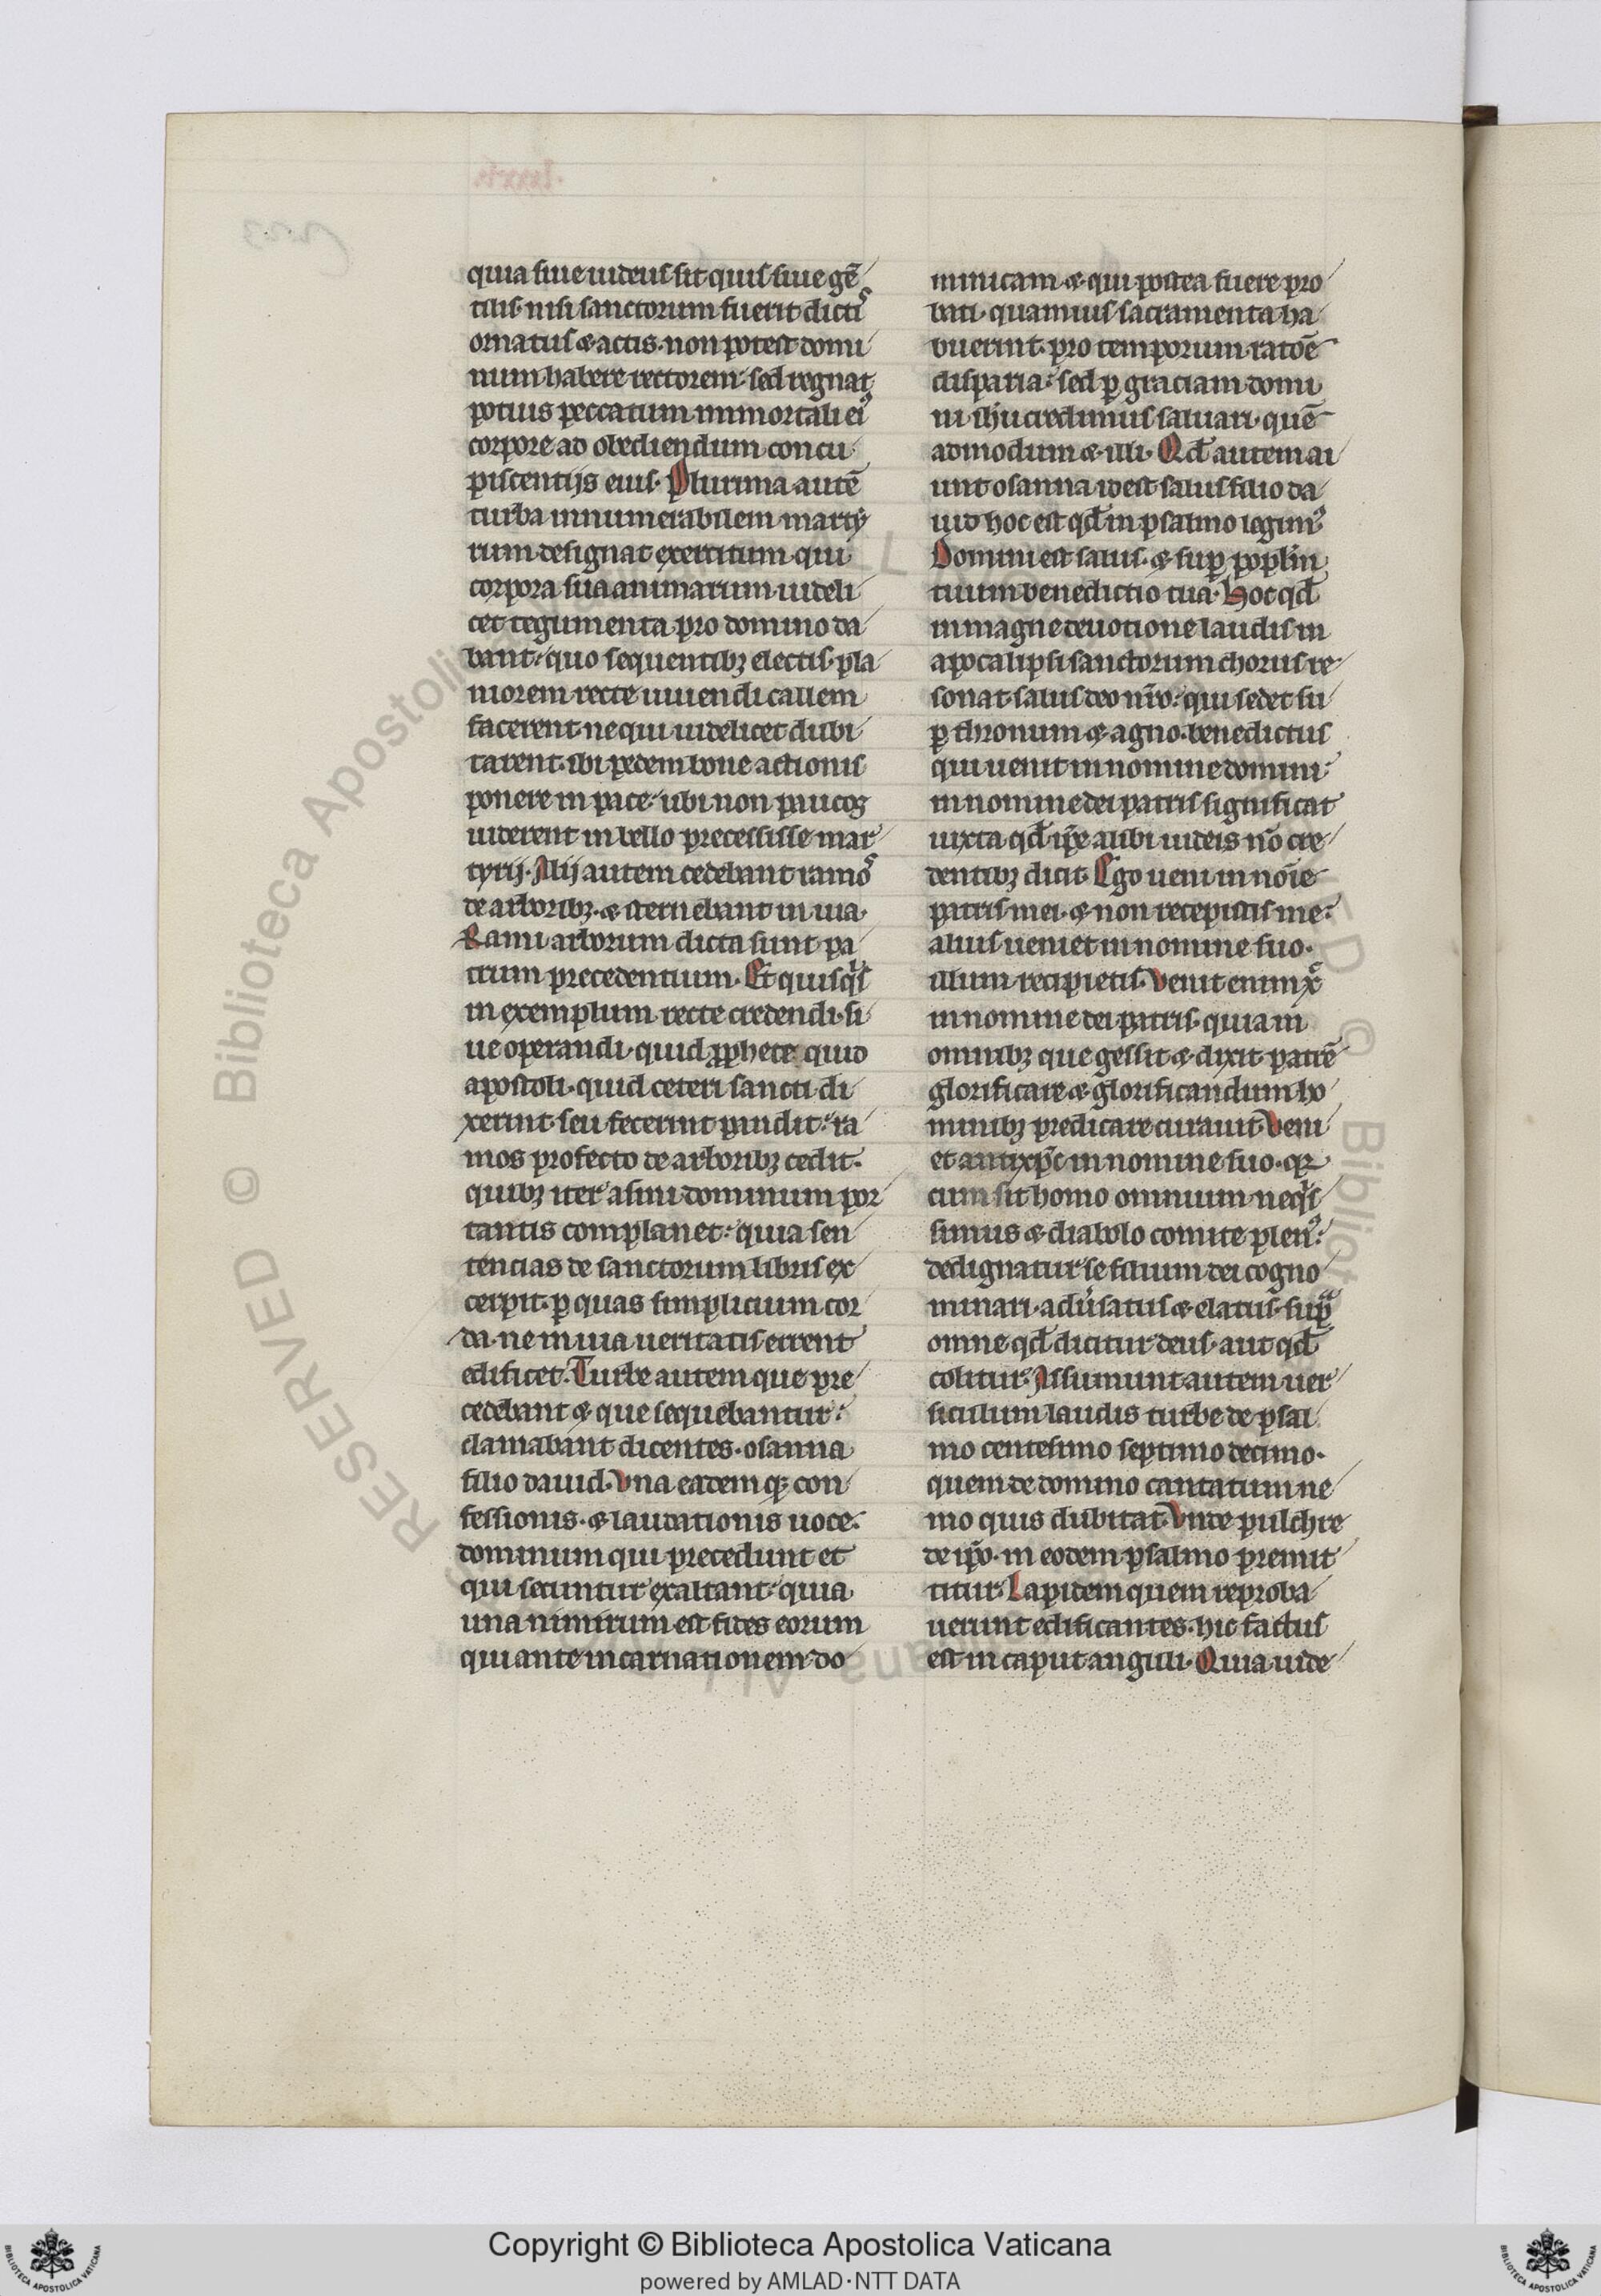 quia siue iudeus sit quis siue gē
tilis· nisi sanctorum fuerit dictis
ornatus & actis· non potest domi
num habere rectorem· sed regnat
potius peccatum in mortali eiꝰ
corpore ad obediendum concu
piscentijs eius· Plurima autē
turba innumerabilem marty
rum designat exercitum· qui
corpora sua animarum· uideli
cet tegumenta pro domino da
bant· quo sequentibꝫ electis· pla
niorem recte uiuendi callem
facerent· ne qui uidelicet dubi
tarent· ibi pedem bone actionis
ponere in pace· ubi non paucos
uiderent in bello precessisse mar
tyrij· Alij autem cedebant ramos
de arboribꝫ· & sternebant in uia·
Rami arborum dicta sunt pa
trum precedentium· Et quisqͥs
in exemplum recte credendi· si
ue operandi· quid ꝓphete quid
apostoli· quid ceteri sancti di
xerint seu fecerint pandit· ra
mos profecto de arboribꝫ cedit·
quibꝫ iter asini dominum por
tantis complanet· quia sen
tencias de sanctorum libris ex
cerpit· ꝑ quas simplicium cor
da· ne in uia ueritatis errent
edificet· Turbe autem que pre
cedebant & que sequebantur·
clamabant dicentes· osanna
filio dauid· Vna eademqꝫ con
fessionis· & laudationis uoce·
dominum qui precedunt et
qui secuntur exaltant· quia
una nimirum est fides eorum
qui ante incarnationem do
minicam· & qui postea fuere pro
bati· quamuis sacramenta ha
buerint· pro temporum ratōe
disparia· sed ꝑ graciam domi
ni ihu credimus saluari· quē
admodum & illi· Qd̄ autem ai
unt osanna idest salus filio da
uid hoc est qd̄ in psalmo legimꝰ
Domini est salus· & suꝑ poplm̄
tuum benedictio tua· Hoc qd̄
in magne deuotione laudis in
apocalipsi sanctorum chorus re
sonat· salus deo nr̄o· qui sedet su
ꝑ thronum & agno· benedictus
qui uenit in nomine domini·
in nomine dei patris significat
iuxta qd̄ ip̄e alibi iudeis nō cre
dentibꝫ dicit· Ego ueni in noīe
patris mei· & non recepistis me·
alius ueniet in nomine suo·
illum recipietis· Venit enim xͨ
in nomine dei patris· quia in
omnibꝫ que gessit & dixit patrē
glorificare & glorificandum ho
minibꝫ predicare curauit· Veni
et antixp̄c in nomine suo· qꝫ
cum sit homo omnium neqͥs
simus & diabolo comite plenꝰ·
dedignatur se filium dei cogno
minari· adūsatus & elatus· supͣ
omne qd̄ dicitur deus· aut qd̄
colitur· Assumunt autem uer
siculum laudis turbe de psal
mo centesimo septimo decimo·
quem de domino cantatum ne
mo quis dubitat· Vnde pulchre
de ip̄o· in eodem psalmo premit
titur· Lapidem quem reproba
uerunt edificantes· hic factus
est in caput anguli· Quia uide
Copyright © Biblioteca Apostolica Vaticana
powered by AMLAD·NTT DATA